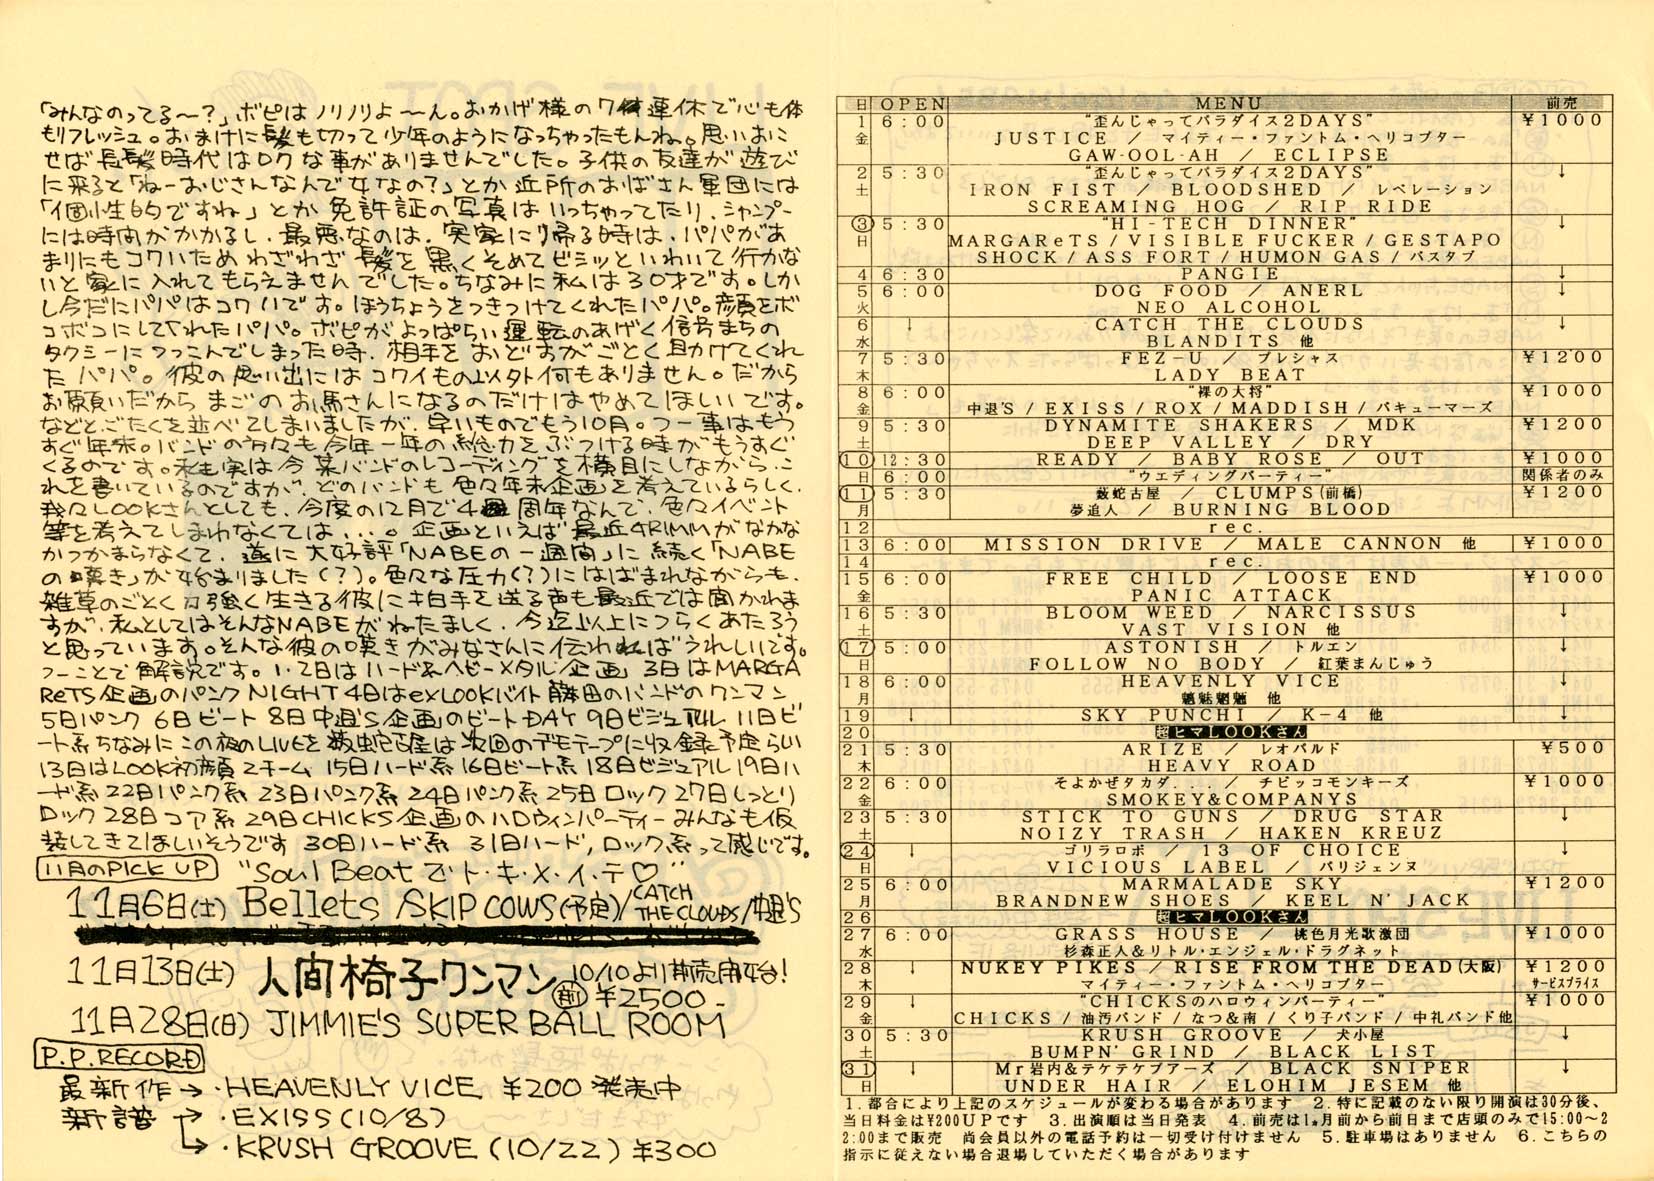 「みんなのってる〜?」ボビはノリノリよ〜ん。おかげ様の7連休で心も体
もリフレッシュ。おまけに髪も切って少年のようになっちゃったもんね。思いおこ
せば長髪時代はロクな事がありませんでした。子供の友達が遊び
に来ると「ねーおじさんなんで女なの?」とか近所のおばさん軍団には
「個性的ですね」とか免許証の写真はいっちゃってたり、シャンプー
には時間がかかるし、最悪なのは、実家に帰る時は、パパがあ
まりにもコワイためわざわざ髪を黒くそめてビシッといわいて行かな
いと家に入れてもらえませんでした。ちなみに私は30才です。しか
し今だにパパはコワイです。ほうちょうをつきつけてくれたパパ。顔をボ
コボコにしてくれたパパ。ボピがよっぱらい運転のあげく信号まちの
タクシーにつっこんでしまった時、相手をおどすがごとく助けてくれ
たパパ。彼の思い出にはコワイもの以外何もありません。だから
お願いだからまごのお馬さんになるのだけはやめてほしいです。
などとごたくを並べてしまいましたが、早いものでもう10月。つー事はもう
すぐ年末。バンドの方々も今年一年の総力をぶつける時がもうすぐ
くるのです。私も実は今某バンドのレコーディングを横目にしながら、こ
れを書いているのですが、どのバンドも色々年末企画を考えているらしく、
我々LOOKさんとしても、今度の12月で4周年なんで、色々イベント
等を考えてしまわなくては...。企画といえば最近4RIMMがなかな
かつかまらなくて、遂に大好評「NABEの一週間」に続く「NABE
の嘆き」が始まりました(?)。色々な圧力(?)にはばまれながらも、
雑草のごとく力強く生きる彼に拍手を送る声も最近では聞かれま
すが、私としてはそんなNABEがねたましく、今迄以上につらくあたろう
と思っています。そんな彼の嘆きがみなさんに伝わればうれしいです。
つーことで解説です。1・2日はハード&ヘビーメタル企画 3日はMARGA
ReTS企画のパンクNIGHT 4日はexLOOKバイト藤田のバンドのワンマン
5日パンク 6日ビート 8日中退'S企画のビートDAY 9日ビジュアル 11日ビ
ート系ちなみにこの夜のLIVEを薮蛇古屋は次回のデモテープに収録予定らしい
13日はLOOK初顔2チーム 15日ハード系 16日ビート系 18日ビジュアル 19日ハ
ード系 22日パンク系 23日パンク系 24日パンク系 25日ロック 27日しっとり
ロック 28日コア系 29日CHICKS企画のハロウィンパーティーみんなも仮
装してきてほしいそうです 30日ハード系 31日ハード,ロック系って感じです。
11月のPICK UP "Soul Beatでト・キ・メ・イ・テ♡"
11月6日(土) Bellets/SKIP COWS(予定)/CATCH THE CLOUDS/中退'S
11月13日(土) 人間椅子ワンマン 10/10より前売開始! 前¥2500-
11月28日(日) JIMMIE'S SUPER BALL ROOM
P.P.RECORD
最新作→・HEAVENLY VICE ¥200 発売中
新譜→・EXISS(10/8)
↳・KRUSH GROOVE(10/22) ¥300
日 OPEN MENU 前売
1 6:00 "歪んじゃってパラダイス2DAYS" ¥1000
金 JUSTICE / マイティー・ファントム・ヘリコプター
GAW-OOL-AH / ECLIPSE
2 5:30 "歪んじゃってパラダイス2DAYS" ↓
土 IRON FIST / BLOODSHED / レベレーション
SCREAMING HOG / RIP RIDE
③ 5:30 "HI-TECH DINNER" ↓
日 MARGAReTS/VISIBLE FUCKER/GESTAPO
SHOCK/ASS FORT/HUMON GAS/バスタブ
4 6:30 PANGIE ↓
5 6:00 DOG FOOD / ANERL ↓
火 NEO ALCOHOL
6 ↓ CATCH THE CLOUDS ↓
水 BLANDITS 他
7 5:30 FEZ-U / プレシャス ¥1200
木 LADY BEAT
8 6:00 "裸の大将" ¥1000
金 中退'S/EXISS/ROX/MADDISH/バキューマーズ
9 5:30 DYNAMITE SHAKERS / MDK ¥1200
土 DEEP VALLEY / DRY
⑩ 12:30 READY / BABY ROSE / OUT ¥1000
日 6:00 "ウエディングパーティー" 関係者のみ
⑪ 5:30 薮蛇古屋 / CLUMPS(前橋) ¥1200
月 夢追人 / BURNING BLOOD
12 rec.
13 6:00 MISSION DRIVE / MALE CANNON 他 ¥1000
14 rec.
15 6:00 FREE CHILD / LOOSE END ¥1000
金 PANIC ATTACK
16 5:30 BLOOM WEED / NARCISSUS ↓
土 VAST VISION 他
⑰ 5:00 ASTONISH / トルエン ↓
日 FOLLOW NO BODY / 紅葉まんじゅう
18 6:00 HEAVENLY VICE ↓
月 魑魅魍魎 他
19 ↓ SKY PUNCHI / K-4 他 ↓
20 超ヒマLOOKさん
21 5:30 ARIZE / レオパルド ¥500
木 HEAVY ROAD
22 6:00 そよかぜタカダ.... / チビッコモンキーズ ¥1000
金 SMOKEY&COMPANYS
23 5:30 STICK TO GUNS / DRUG STAR ↓
土 NOIZY TRASH / HAKEN KREUZ
㉔ ↓ ゴリラロボ / 13 OF CHOICE ↓
日 VICIOUS LABEL / パリジェンヌ
25 6:00 MARMALADE SKY ¥1200
月 BRANDNEW SHOES / KEEL N' JACK
26 超ヒマLOOKさん
27 6:00 GRASS HOUSE / 桃色月光歌激団 ¥1000
水 杉森正人&リトル・エンジェル・ドラグネット
28 ↓ NUKEY PIKES / RISE FROM THE DEAD(大阪) ¥1200
木 マイティー・ファントム・ヘリコプター サービスプライス
29 ↓ "CHICKSのハロウィンパーティー" ¥1000
金 CHICKS/油汚バンド/なつ&南/くり子バンド/中礼バンド他
30 5:30 KRUSH GROOVE / 犬小屋 ↓
土 BUMPN' GRIND / BLACK LIST
㉛ ↓ Mr岩内&テケテケブアーズ / BLACK SNIPER ↓
日 UNDER HAIR / ELOHIM JESEM 他
1.都合により上記のスケジュールが変わる場合があります 2.特に記載のない限り開演は30分後、
当日料金は¥200UPです 3.出演順は当日発表 4.前売は1ヵ月前から前日まで店頭のみで15:00〜2
2:00まで販売 尚会員以外の電話予約は一切受け付けません 5.駐車場はありません 6.こちらの
指示に従えない場合退場していただく場合があります